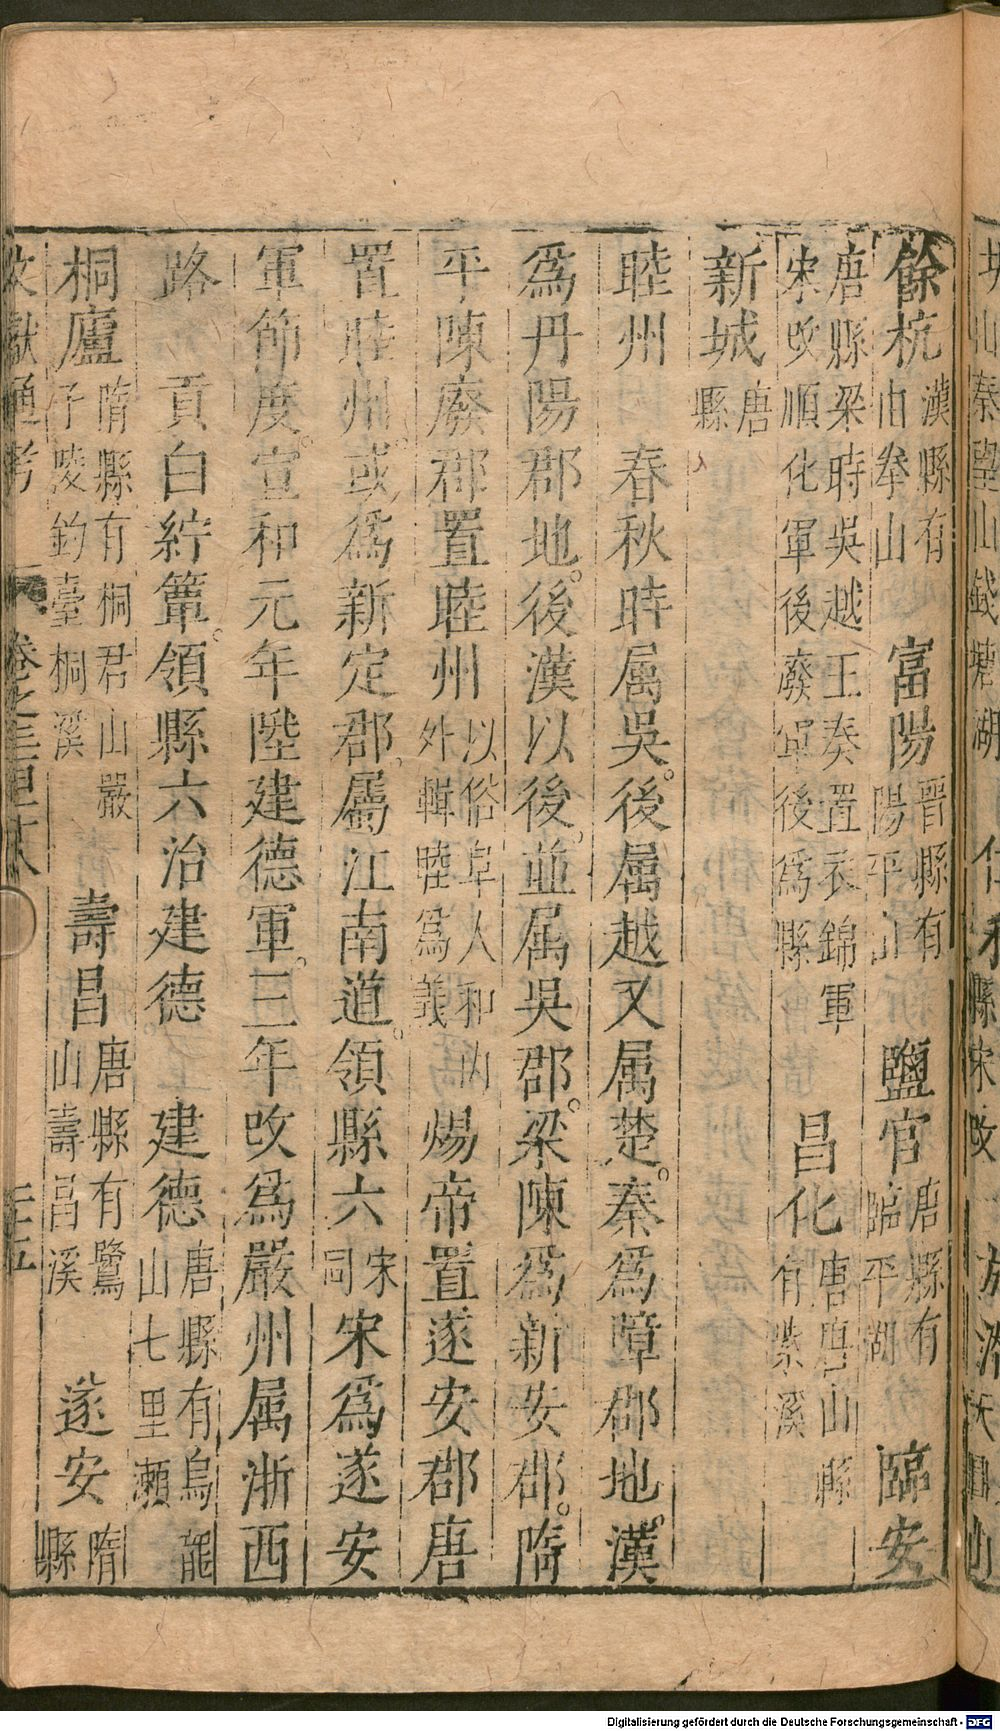 餘杭漢縣有由拳山 富陽晉縣有陽平山 鹽官唐縣有臨平湖 臨安
唐縣梁時吳越王奏置衣錦軍宋改順化軍後廢軍後為縣 昌化唐唐山縣有紫溪
新城唐縣
睦州 春秋時属吳後属越又属楚。秦為鄣郡地。漢
為丹陽郡地。後漢以後。並属吳郡。梁陳為新安郡。隋
平陳廢郡置睦州以俗阜人和內外輯睦為義 煬帝置遂安郡唐
置睦州。或為新定郡。屬江南道。領縣六宋同宋為遂安
軍節度。宣和元年陞建德軍。三年改為嚴州属浙西
路 貢白紵簟。領縣六治建德。 建德唐縣有烏龍山七里瀬
桐廬隋縣有桐君山嚴子陵釣臺桐溪 壽昌唐縣有鷺山壽昌溪 遂安隋縣
文獻通考 卷之三百十八
秦望山錢塘湖 仁和縣宋改 於潛天目山
Digitalisierung gefördert durch die Deutsche Forschungsgemeinschaft - DFG